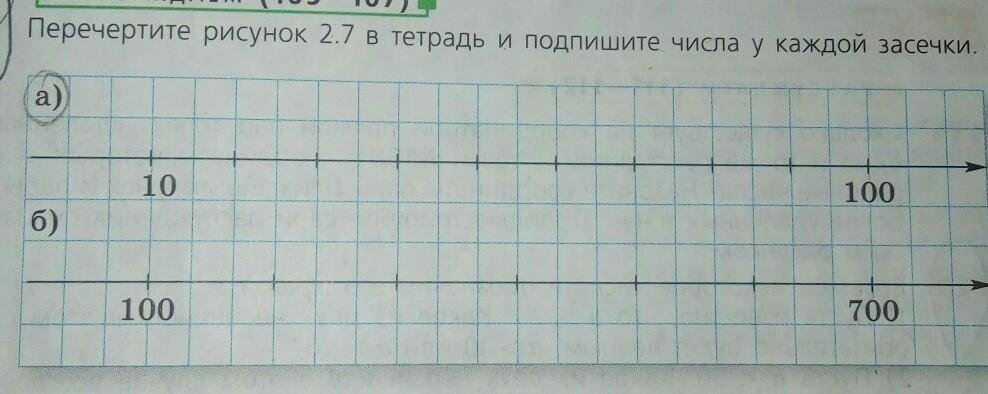 Перечертите рисунок 2.7 в тетрадь и подпишите числа у каждой засечки.
а)
10 100
б)
100 700